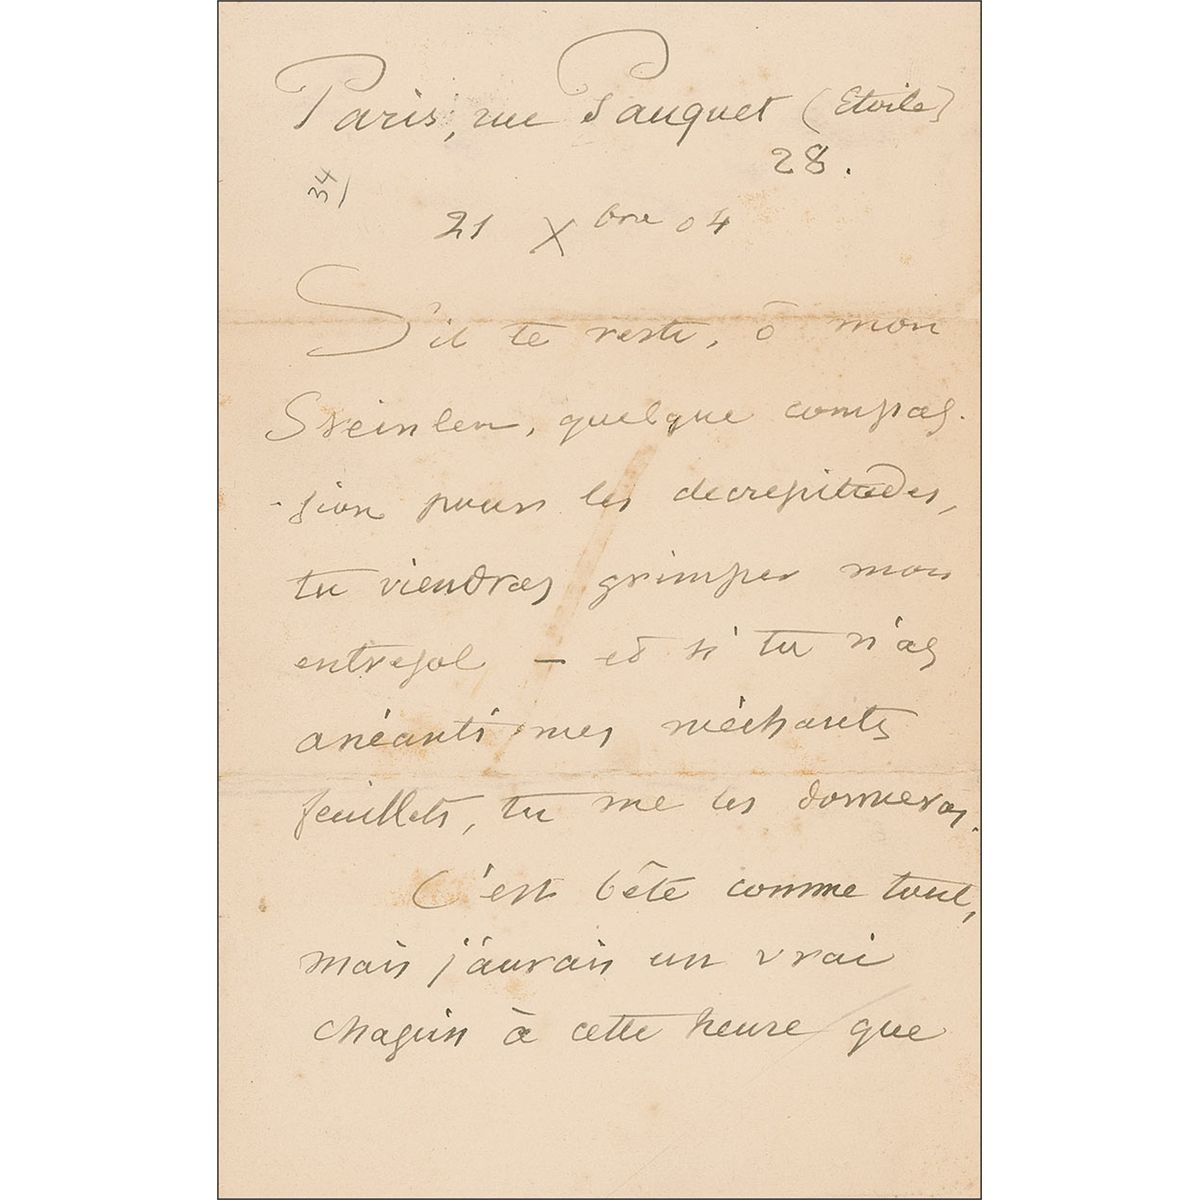 Paris, rue Pauquet (Etoile)
28.
34
21 Xbre 04
S'il te reste, ô mon
Steinlen, quelque compas-
-sion pour les decrepitudes,
tu viendras grimper mon
entresol – et si tu n'as
anéanti mes méchants
feuillets, tu me les donneras.
C'est bête comme tout,
mais j'aurais un vrai
chagrin à cette heure que